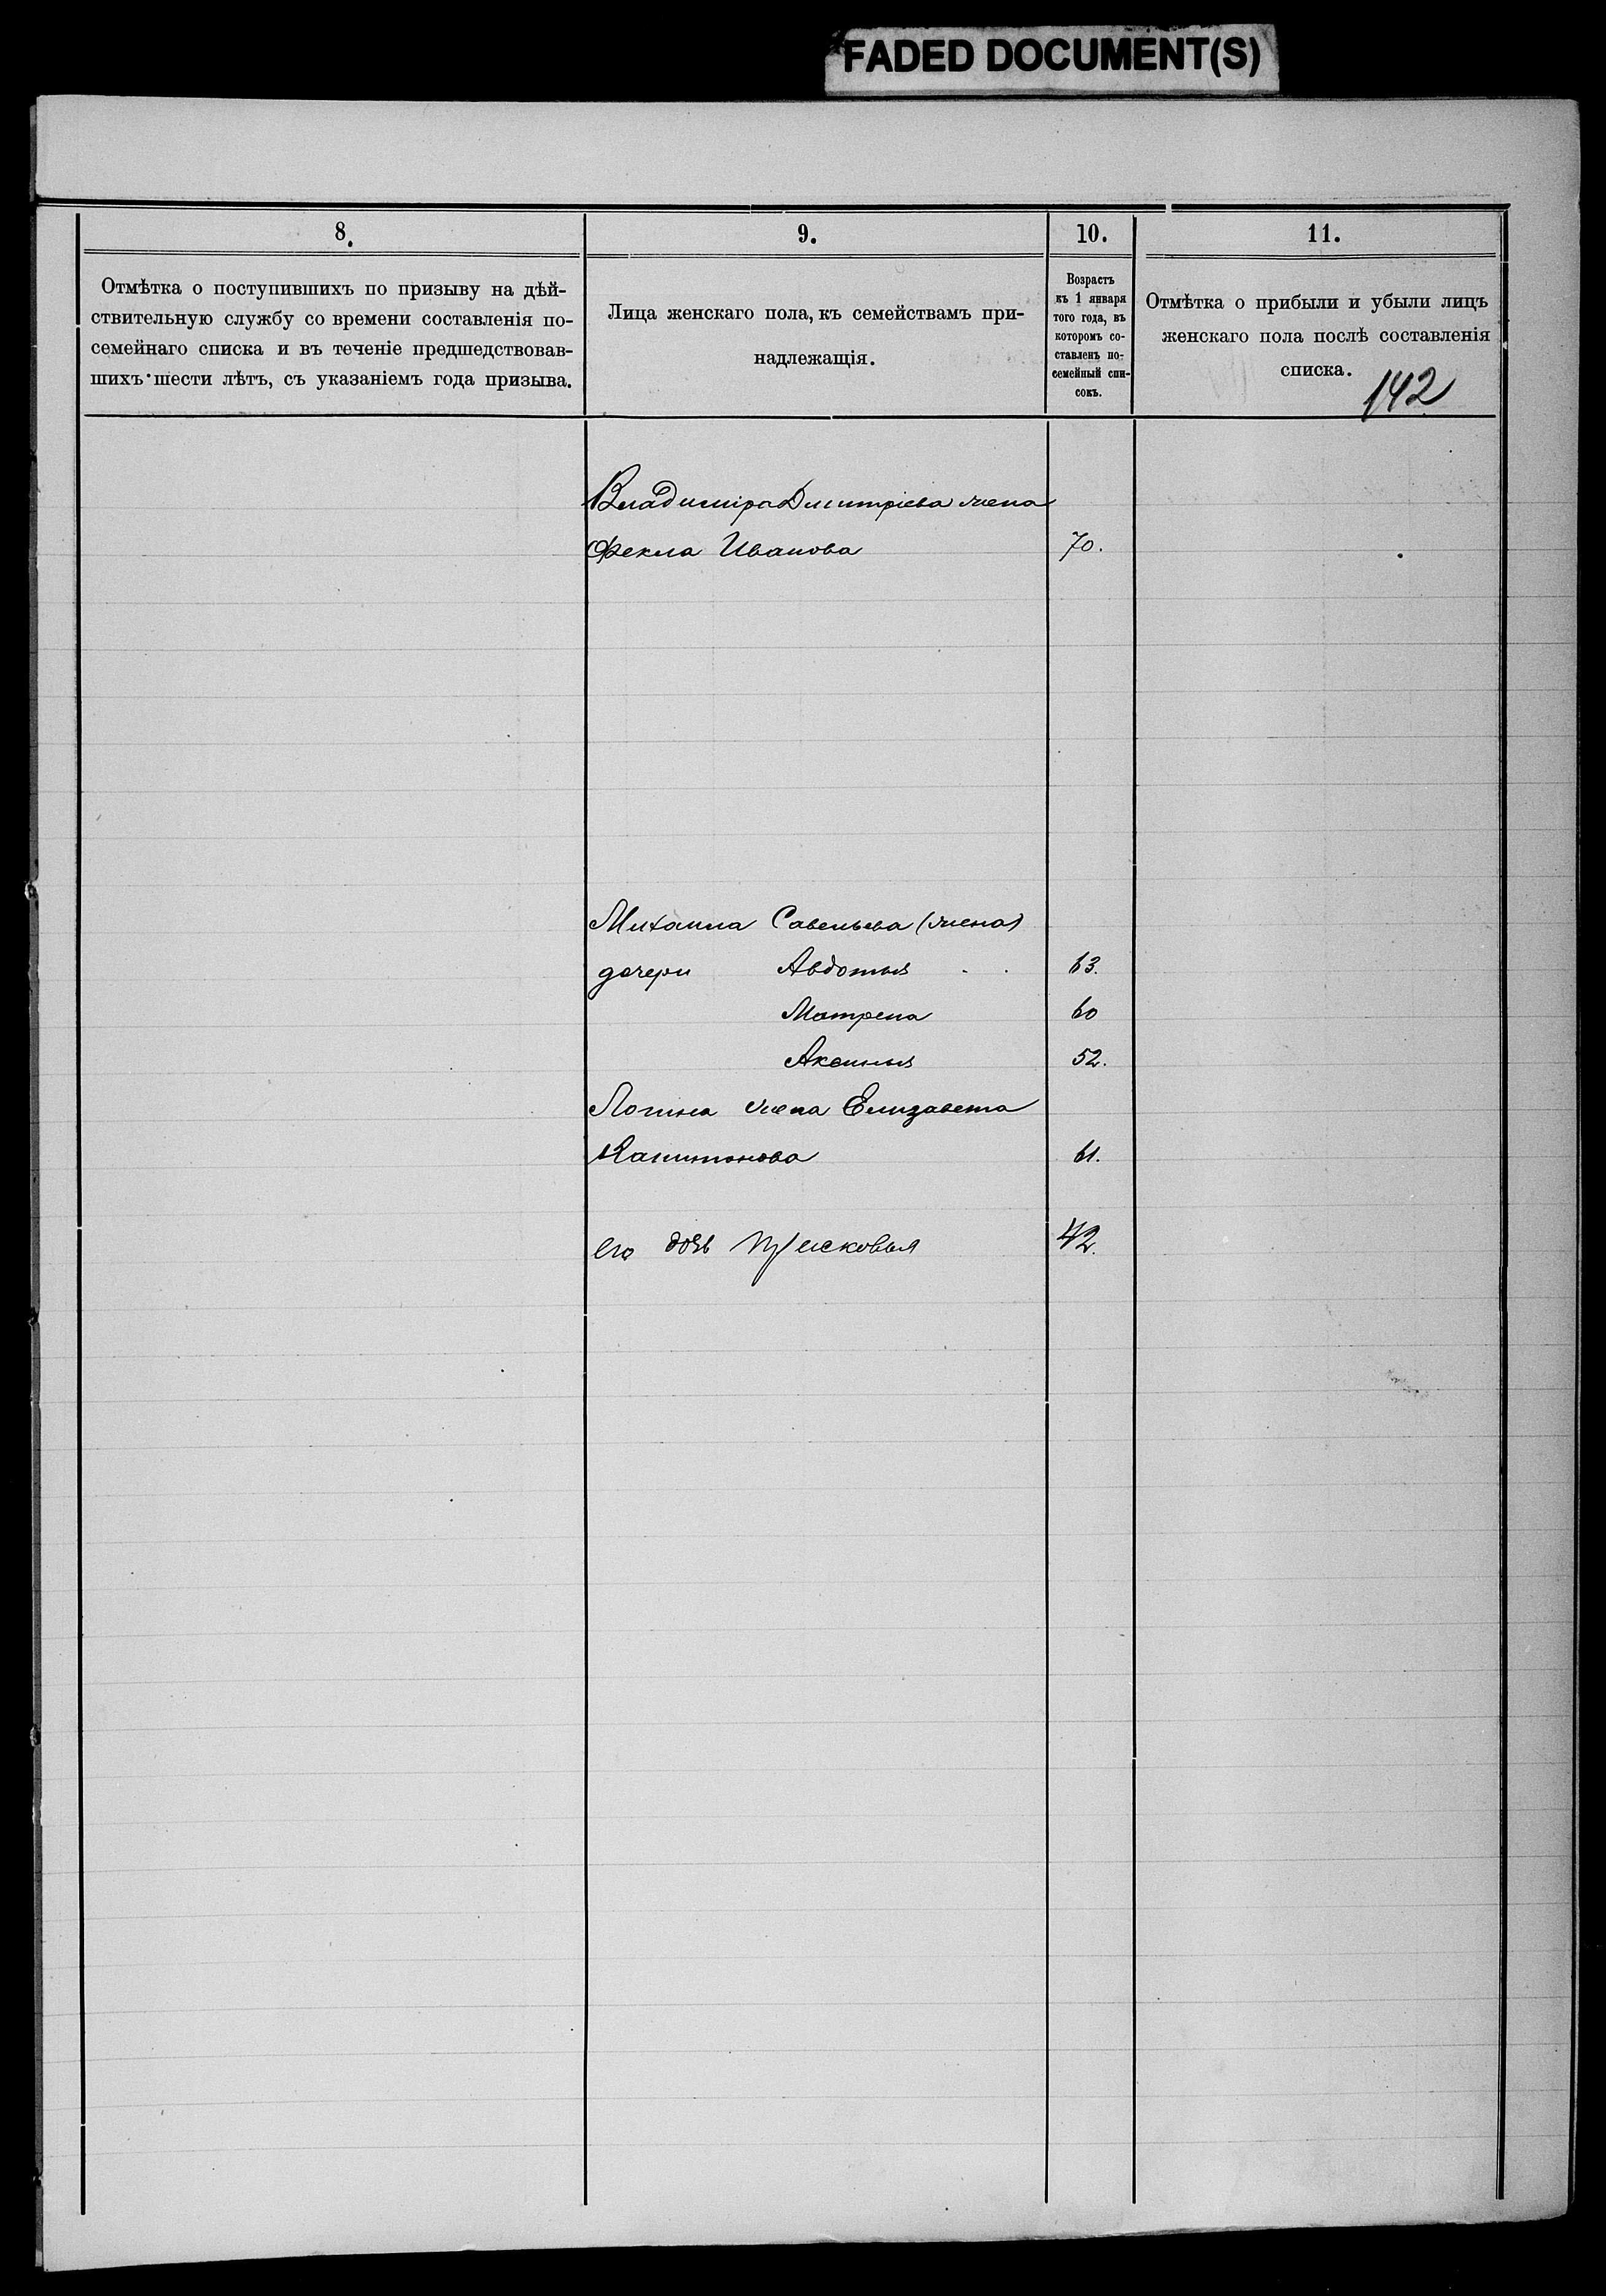 FADED DOCUMENT(S)
8.
9.
10.
11.
Отмѣтка о поступившихъ по призыву на дѣй-
ствительную службу со времени составленія по-
семейнаго списка и въ теченіе предшедствовав-
шихъ шести лѣтъ, съ указаніемъ года призыва.
Лица женскаго пола, къ семействамъ при-
надлежащія.
Возрастъ
къ 1 января
того года, въ
которомъ со-
ставленъ по-
семейный спи-
сокъ.
Отмѣтка о прибыли и убыли лицъ
женскаго пола послѣ составленія
списка.
142
Владиміра Дмитріева жена
Фекла Иванова 70.
Михаила Савельева (жена)
дочери Авдотья 63.
Матрена 60
Аксинья 52.
Логина жена Елизавета
Капитонова 61.
его дочь Прасковья 42.